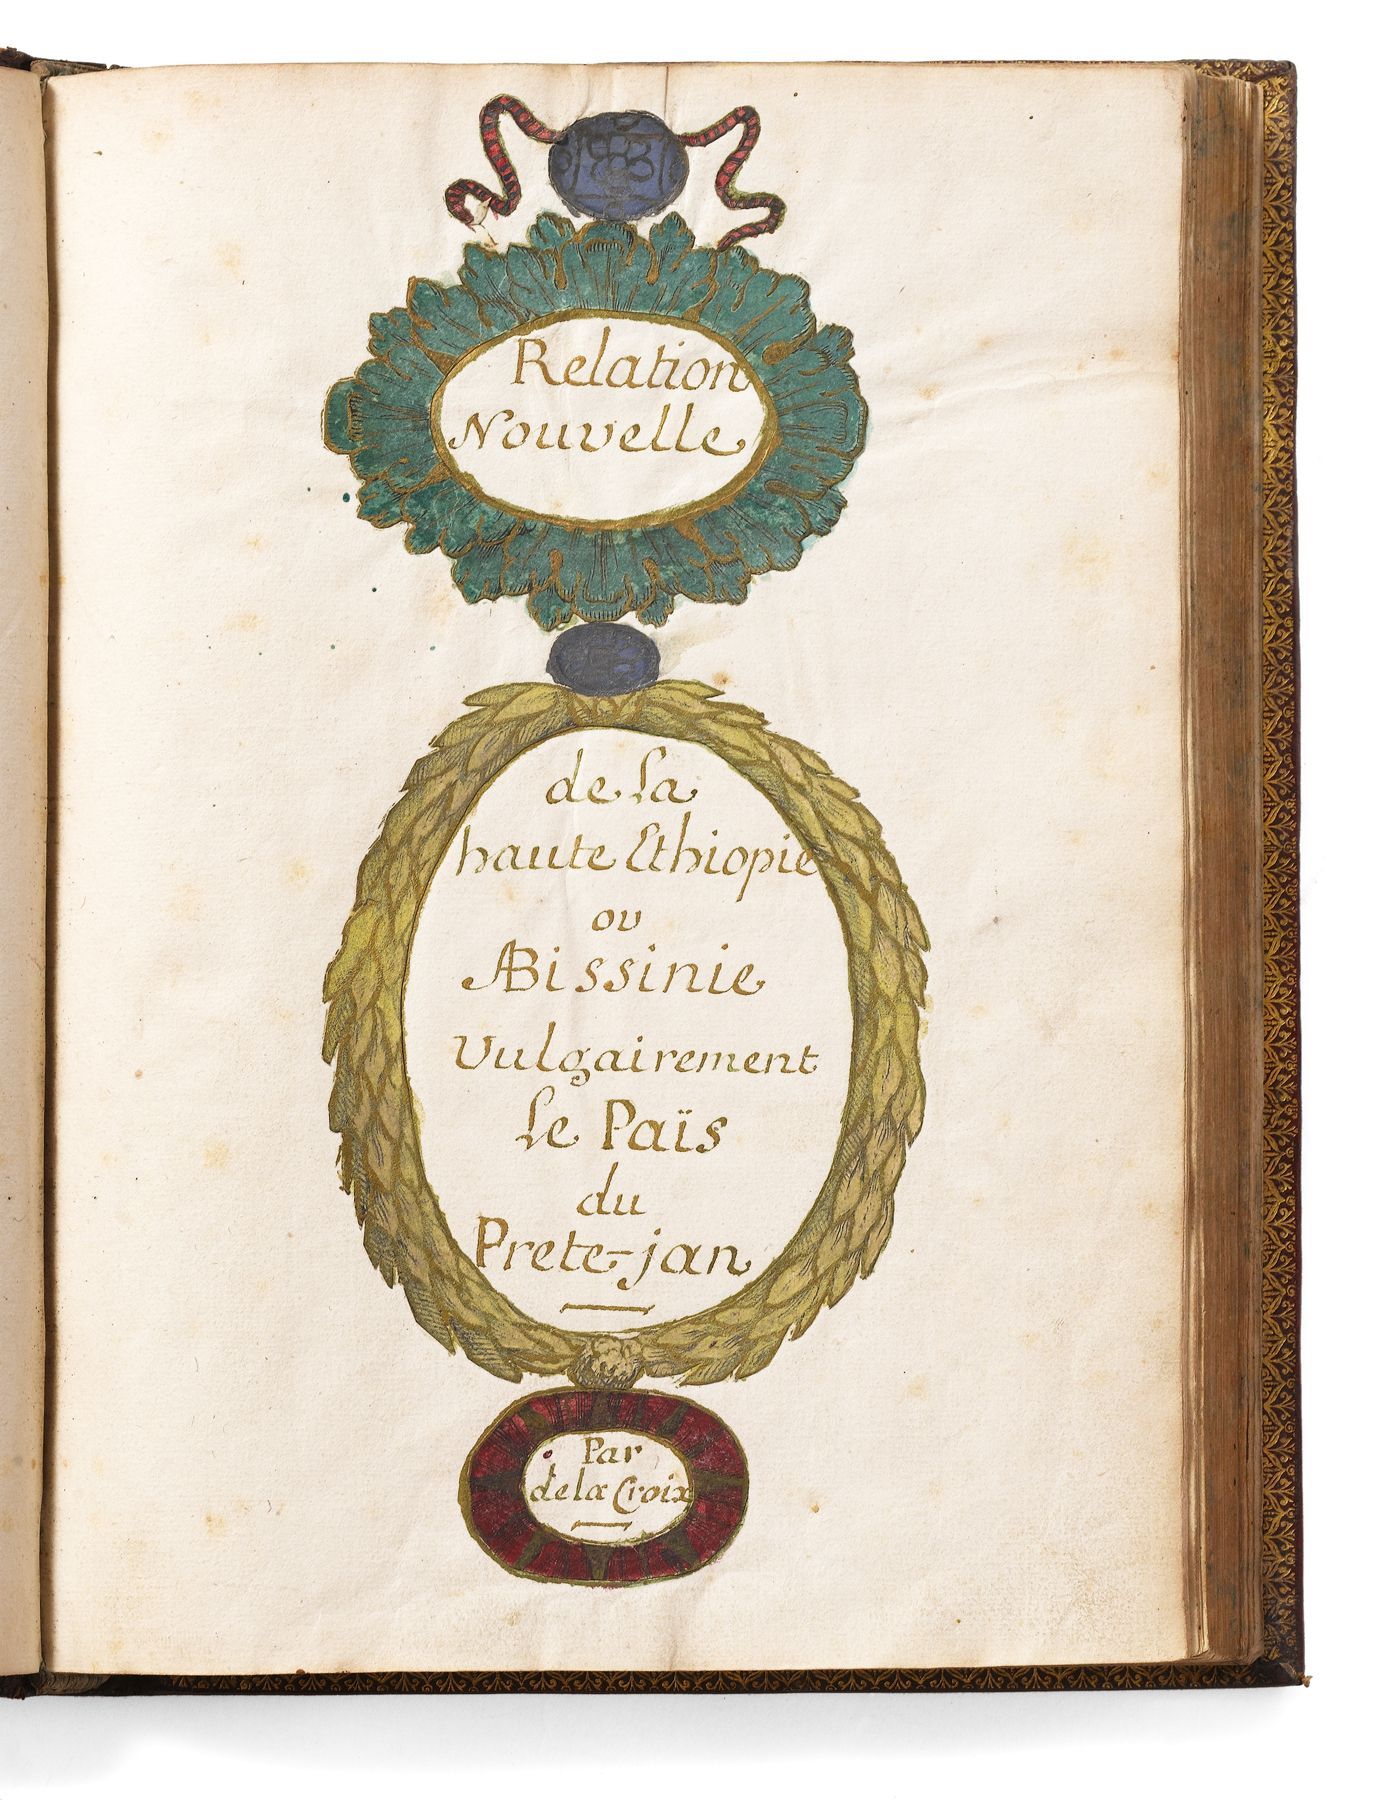 Relation
Nouvelle
de La
haute Ethiopie
ou
ABissinie
Vulgairement
Le Païs
du
Prete-jan
Par
de la Croix